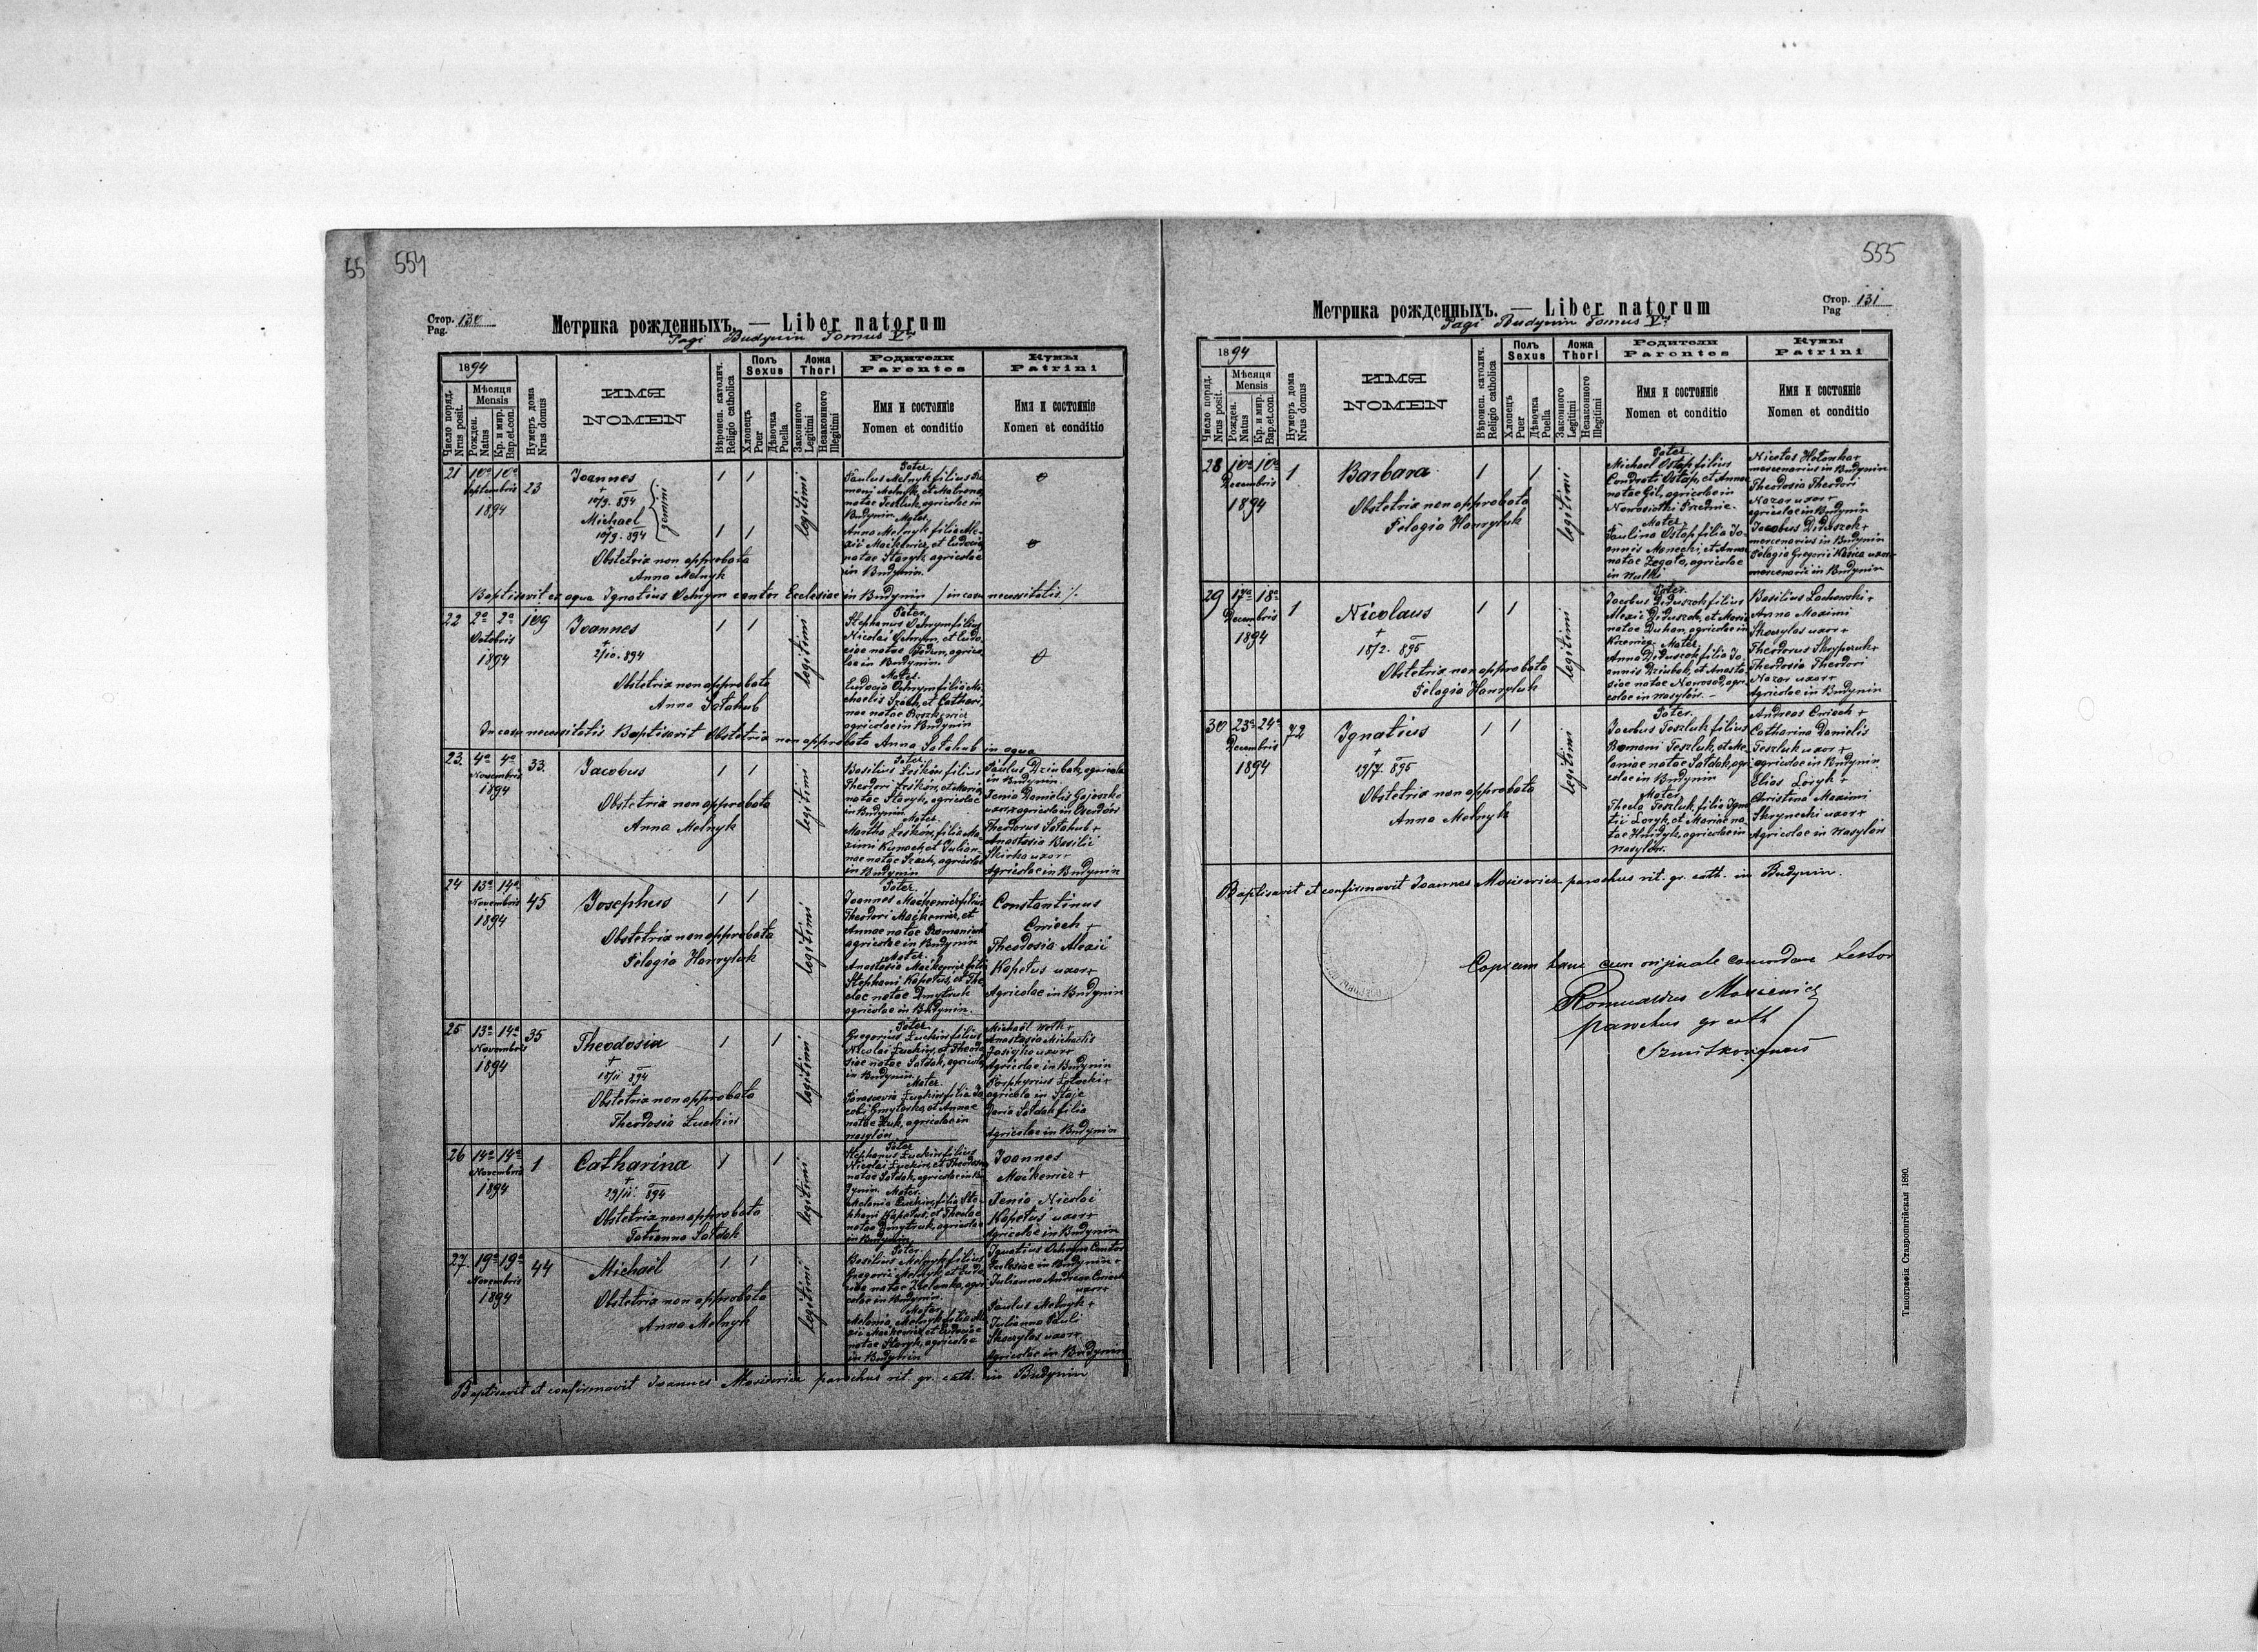 55
554
Стор. 130
Pag.
Метрика рожденныхъ. — Liber natorum
Pagi Budynin Tomus V
1894
Число поряд. Nrus posit.
Мѣсяця Mensis
Рожден. Natus
Кр. и мир. Bap.et.con.
Нумеръ дома Nrus domus
ИМЯ
NOMEN
Вѣроисп. католич. Religio catholica
Полъ Sexus
Хлопецъ Puer
Дѣвочка Puella
Ложа Thori
Законного Legitimi
Незаконного Illegitimi
Родители
Parentes
Имя и состояніе
Nomen et conditio
Кумы
Patrini
Имя и состояніе
Nomen et conditio
21 10a 10a Septembris 1894 23
Joannes
+ 10/9. 894
Michael
+ 10/9. 894
gemini
1 1
1 1
legitimi
Obstetrix non approbata
Anna Melnyk
Pater
Paulus Melnyk filius Ro-
mani Melnyk, et Matronae
natae Teszluk, agricolae in
Budynin. Mater.
Anna Melnyk filia Ale-
xii Maćkewicz, et Eudociae
natae Staryk agricolae
in Budynin.
Baptisavit ex aqua Ignatius Ochrym cantor Ecclesiae in Budynin / in casu necessitatis /.
22 2a 2a Octobris 1894 109
Joannes
+ 2/10. 894
1 1
legitimi
Obstetrix non approbata
Anna Sołahub
Pater.
Stephanus Ochrym filius
Nicolai Ochrym, et Eudo-
ciae natae Fedun, agrico-
lae in Budynin.
Mater.
Eudocia Ochrym filia Mi-
chaelis Szach, et Cathari-
nae natae Roszkewicz
agricolae in Budynin
In casu necessitatis Baptisavit Obstetrix non approbata Anna Sołahub in aqua
23. 4a 4a Novembris 1894 33.
Jacobus
1 1
legitimi
Obstetrix non approbata
Anna Melnyk
Pater.
Basilius Leśków filius
Theodori Leśków, et Maria
natae Staryk, agricolae
in Budynin. Mater.
Martha Leśków, filia Ma-
ximi Kunach, et Julian-
nae natae Szach, agricolae
in Budynin
Paulus Dziubak, agricola
in Budynin.
Xenia Danielis
uxor agricolae in
Theodorus Sołahub +
Anastasia Basilii
uxor
Agricolae in Budynin
24 13a 14a Novembris 1894 45
Josephus
1 1
legitimi
Obstetrix non approbata
Pelagia Hawryluk
Pater
Joannes Maćkewicz filius
Theodori Maćkewicz, et
Annae natae Romaniuk
agricolae in Budynin
Mater.
Anastasia Maćkewicz filia
Stephani Kopetus, et The-
clae natae Dmytruk
agricolae in Budynin.
Constantinus
Cwiech +
Theodosia Alexii
Kopetus uxor +
Agricolae in Budynin
25 13a 14a Novembris 1894 35
Theodosia
+ 18/11 894
1 1
legitimi
Obstetrix non approbata
Theodosia Łuckiw
Pater
Gregorius Łuckiw filius
Nicolai Łuckiw, et Theodo-
siae natae Sołdak, agricolae
in Budynin.
Mater.
Parascevia Łuckiw filia Ja-
cobi et Annae
natae Żuk, agricolae in
Wasylów
Michaël Wowk +
Anastasia Michaelis
uxor +
Agricolae in Budynin
Porphyrius +
agricola in Staje
Daria Sołdak filia
Agricolae in Budynin
26 14a 14a Novembris 1894 1
Catharina
+ 29/11. 894
1 1
legitimi
Obstetrix non approbata
Tatianna Sołdak
Pater
Stephanus Łuckiw filius
Nicolai Łuckiw, et Theodosiae
natae Sołdak, agricolae in Bu-
dynin. Mater.
Melania Łuckiw, filia Ste-
phani Kopetus, et Theclae
natae Dmytruk, agricolae
in Budynin
Joannes
Maćkewicz +
Xenia Nicolai
Kopetus uxor +
Agricolae in Budynin
27. 19a 19a Novembris 1894 44
Michaël
1 1
legitimi
Obstetrix non approbata
Anna Melnyk
Pater.
Basilius Melnyk filius
Gregorii Melnyk, et Eudo-
ciae natae agri-
colae in Budynin.
Mater
Melania Melnyk filia Ale-
xii Maćkewicz, et Eudociae
natae Staryk, agricolae
in Budynin
Ignatius Ochrym Cantor
Ecclesiae in Budynin +
Julianna Andreae Cwiech
uxor +
Paulus Melnyk +
Julianna Pauli
Skoczylas uxor +
Agricolae in Budynin
Baptisavit et confirmavit Joannes Mosiewicz parochus rit. gr. cath. in Budynin
555
Стор. 131
Pag
Метрика рожденныхъ. — Liber natorum
Pagi Budynin Tomus V
1894
Число поряд. Nrus posit.
Мѣсяця Mensis
Рожден. Natus
Кр. и мир. Bap.et.con.
Нумеръ дома Nrus domus
ИМЯ
NOMEN
Вѣроисп. католич. Religio catholica
Полъ Sexus
Хлопецъ Puer
Дѣвочка Puella
Ложа Thori
Законного Legitimi
Незаконного Illegitimi
Родители
Parentes
Имя и состояніе
Nomen et conditio
Кумы
Patrini
Имя и состояніе
Nomen et conditio
28 10a 10a Decembris 1894 1
Barbara
1 1
legitimi
Obstetrix non approbata
Pelagia Hawryluk
Pater.
Michael Ostap filius
Condrati Ostap, et Annae
natae Gil, agricolae in
Nowosiółki Przednie.
Mater.
Paulina Ostap filia Jo-
annis Manecki, et Annae
natae Żegało, agricolae
in Wulki
Nicolas +
mercenarius in Budynin
Theodosia Theodori
Nazar uxor +
agricolae in Budynin
Jacobus Diduszok +
mercenarius in Budynin
Pelagia Gregorii uxor
mercenarii in Budynin
29 17a 18a Decembris 1894 1
Nicolaus
+ 18/2. 895
1 1
legitimi
Obstetrix non approbata
Pelagia Hawryluk
Pater.
Jacobus Diduszok filius
Alexii Diduszok, et Maria
natae Duhan, agricolae in
Krzewica. Mater
Anna Diduszok filia Jo-
annis Dziubak, et Anasta-
siae natae Nowosad, agri-
colae in Wasylów. —
Basilius Lachowski +
Anna Maximi
Skoczylas uxor +
Theodorus Skrypczuk +
Theodosia Theodori
Nazar uxor +
Agricolae in Budynin
30 23a 24a Decembris 1894 72
Ignatius
+ 19/7. 895
1 1
legitimi
Obstetrix non approbata
Anna Melnyk
Pater.
Jacobus Teszluk filius
Romani Teszluk, et Me-
laniae natae Sołdak, agri-
colae in Budynin
Mater
Thecla Teszluk, filia Igna-
tii Loryk, et Mariae na-
tae Hnidyk, agricolae in
Wasylów.
Andreas Cwiech +
Catharina Danielis
Teszluk uxor +
agricolae in Budynin
Elias Loryk +
Christina Maximi
Skrynecki uxor +
Agricolae in Wasylów
Baptisavit et confirmavit Joannes Mosiewicz parochus rit. gr. cath. in Budynin.
Copiam hanc cum originale concordare testor
Romualdus Mosiewicz
parochus gr cath
Типографія Ставропигійская 1890.